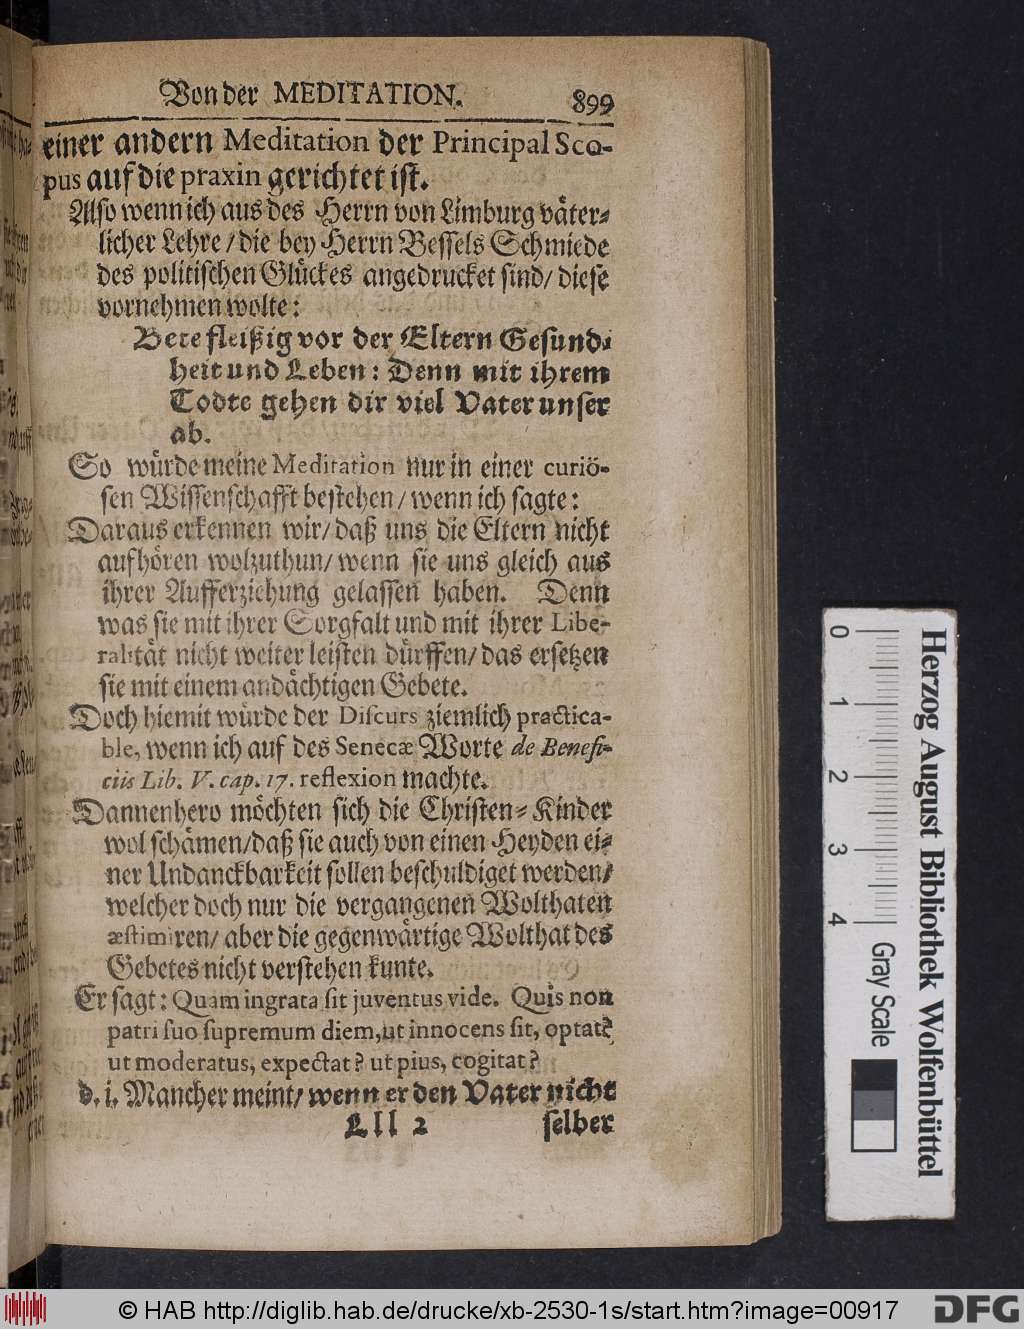 Von der MEDITATION. 899
einer andern Meditation der Principal Sco-
pus auf die praxin gerichtet ist.
Also wenn ich aus des Herrn von Limburg väter-
licher Lehre / die bey Herrn Bessels Schmiede
des politischen Glückes angedrucket sind / diese
vornehmen wolte:
Bete fleißig vor der Eltern Gesund-
heit und Leben: Denn mit ihrem
Todte gehen dir viel Vater unser
ab.
So würde meine Meditation nur in einer curiö-
sen Wissenschafft bestehen / wenn ich sagte:
Daraus erkennen wir / daß uns die Eltern nicht
aufhören wolzuthun / wenn sie uns gleich aus
ihrer Aufferziehung gelassen haben. Denn
was sie mit ihrer Sorgfalt und mit ihrer Libe-
ralität nicht weiter leisten dürffen / das ersetzen
sie mit einem andächtigen Gebete.
Doch hiemit würde der Discurs ziemlich practica-
ble, wenn ich auf des Senecæ Worte de Benefi-
ciis Lib. V. cap. 17. reflexion machte.
Dannenhero möchten sich die Christen-Kinder
wol schämen / daß sie auch von einen Heyden ei-
ner Undanckbarkeit sollen beschuldiget werden /
welcher doch nur die vergangenen Wolthaten
æstimiren / aber die gegenwärtige Wolthat des
Gebetes nicht verstehen kunte.
Er sagt: Quam ingrata sit juventus vide. Quis non
patri suo supremum diem, ut innocens sit, optat?
ut moderatus, expectat? ut pius, cogitat?
d. i. Mancher meint / wenn er den Vater nicht
Lll 2 selber
0 1 2 3 4
Herzog August Bibliothek Wolfenbüttel
Gray Scale
© HAB http://diglib.hab.de/drucke/xb-2530-1s/start.htm?image=00917
DFG